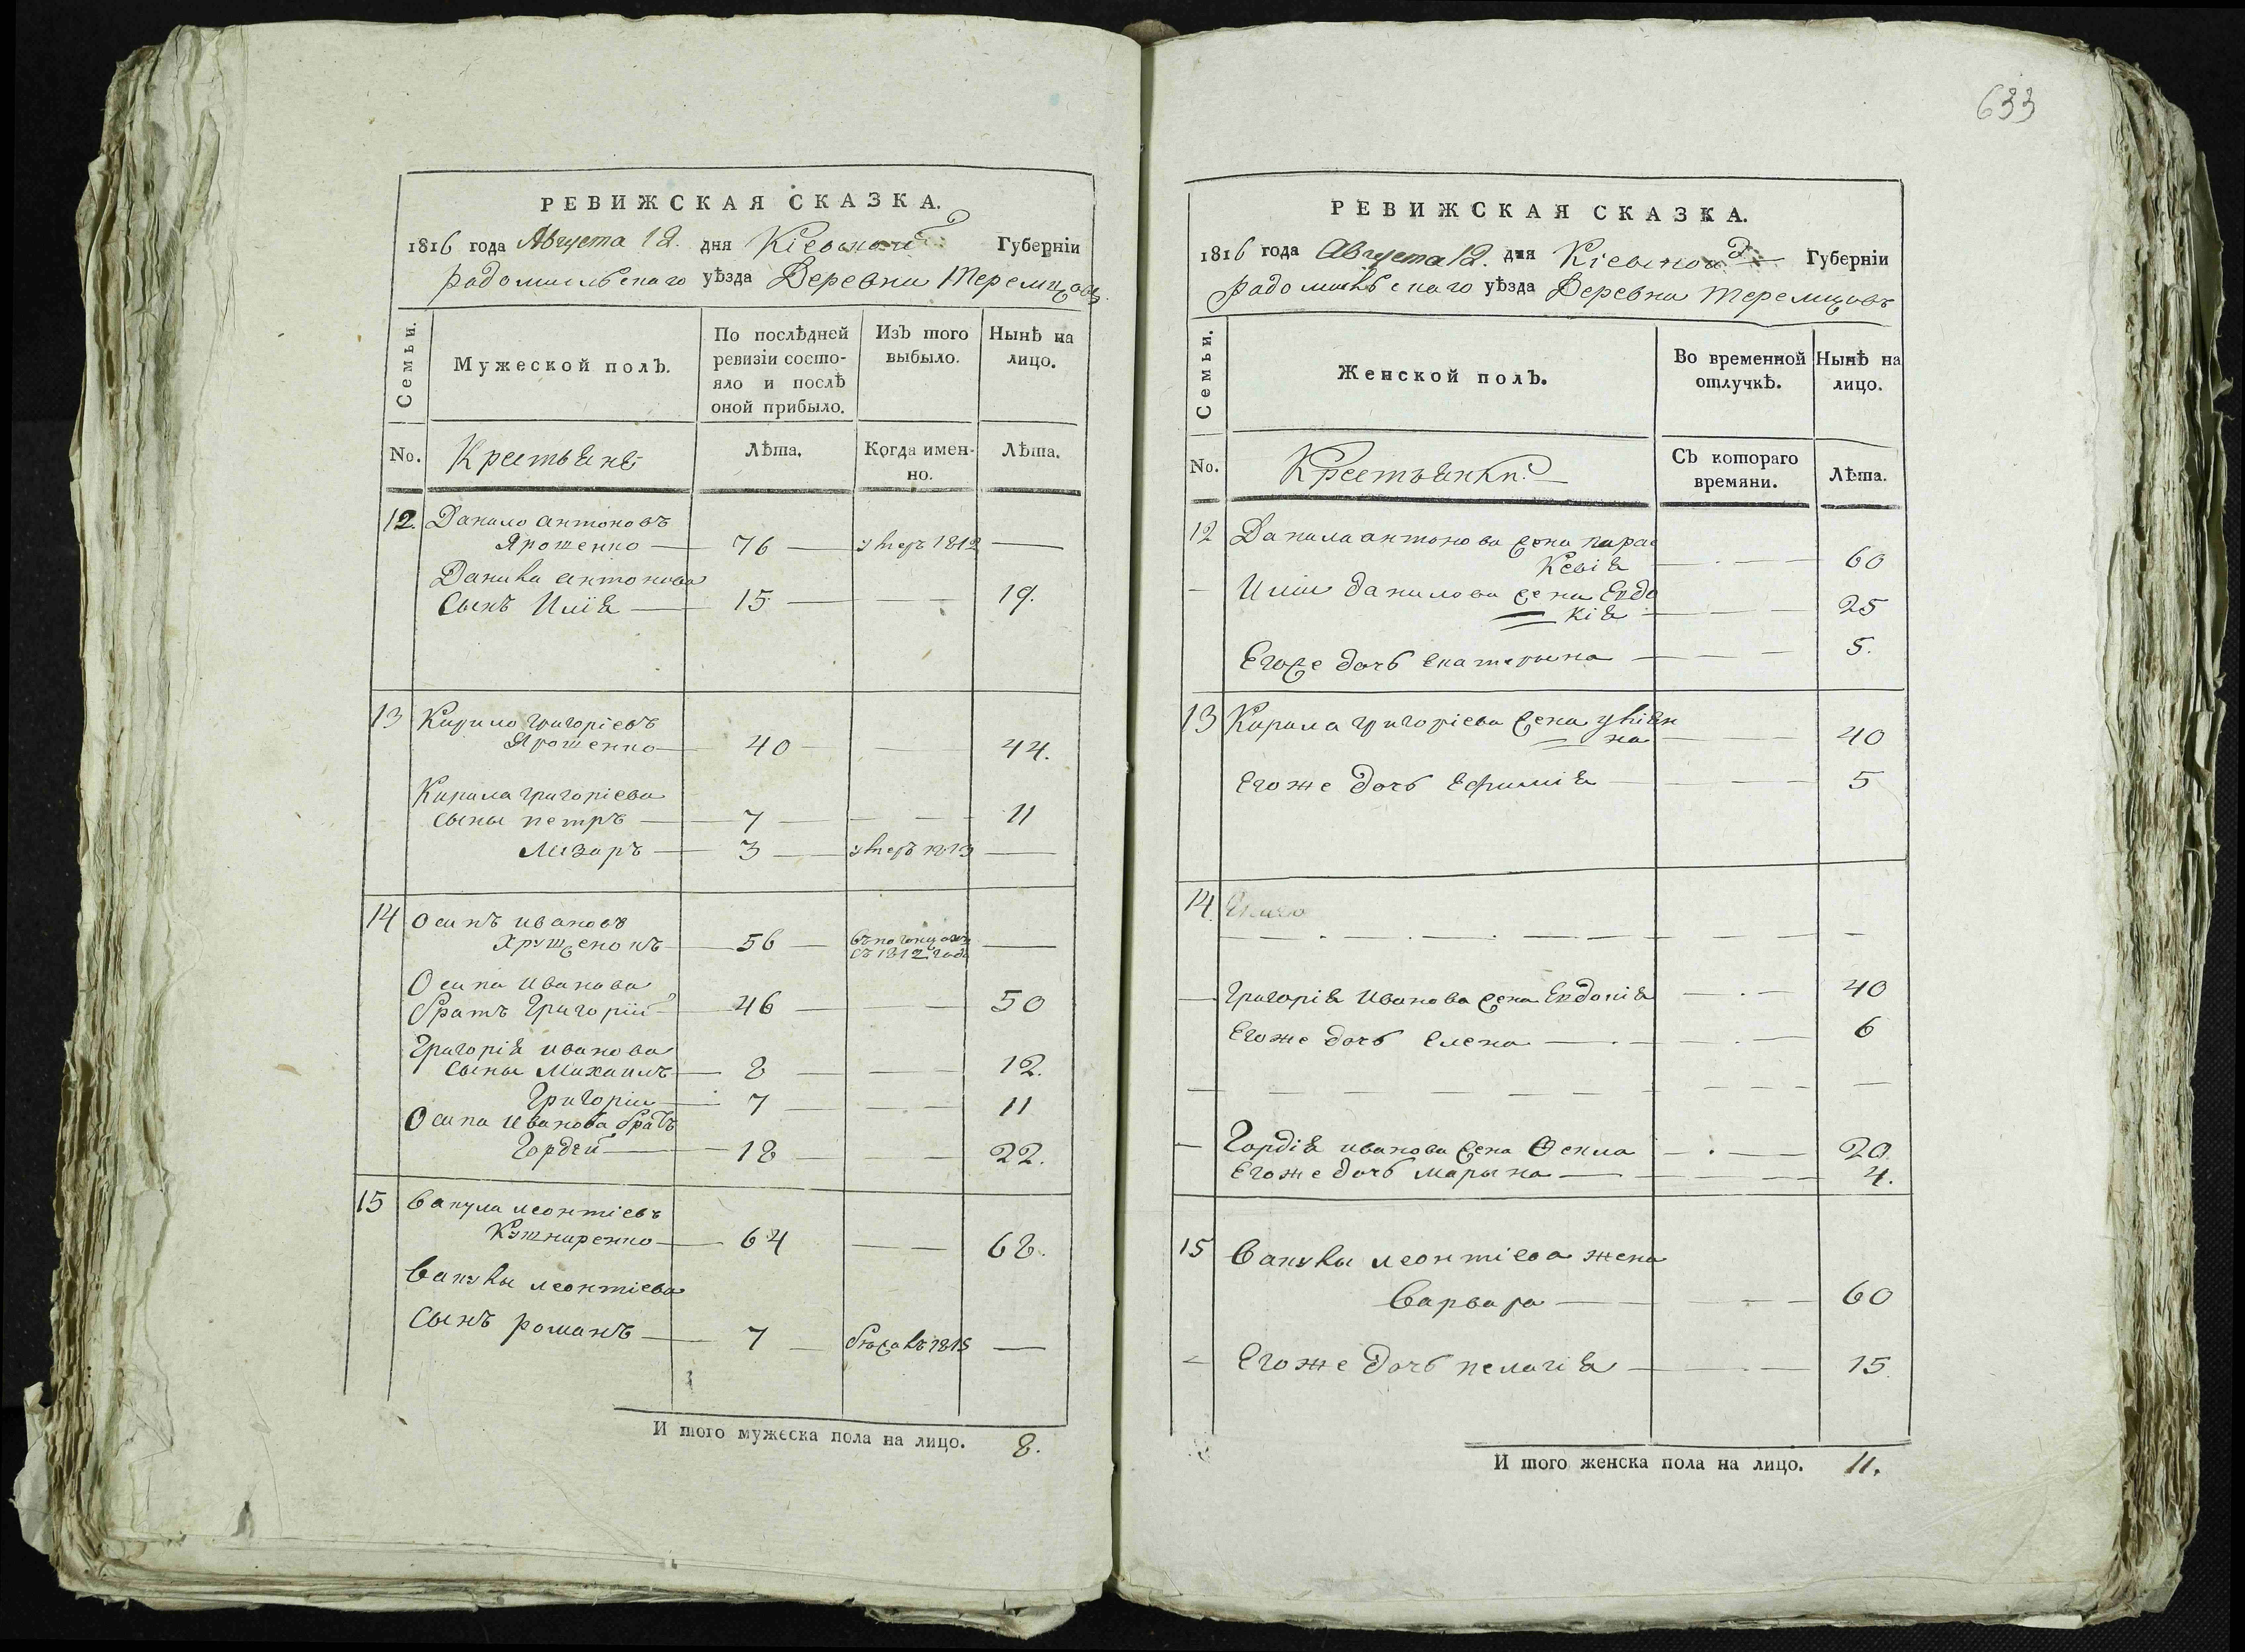 РЕВИЖСКАЯ СКАЗКА.
1816 года Августа 12. дня Кіевской Губерніи
радомыльскаго уѣзда Деревни Теремцовъ
Семьи.
Мужеской полъ.
По послѣдней ревизіи состо-
яло и послѣ
оной прибыло.
Изъ того
выбыло.
Нынѣ на
лицо.
No. Крестьяне
Лѣта.
Когда имен-
но.
Лѣта.
12. Данило антоновъ
Ярошенко — 76 — умеръ 1812 —
Данила антонова
Сынъ Илія — 15 — — 19.
13 Кирило григоріевъ
Ярошенко — 40 — — 44.
Кирила григоріева
сыны петръ — 7 — — 11
Лазаръ — 3 — умеръ 1813 —
14 Осипъ ивановъ
Хрущенокъ — 56 — 1812 года —
Осипа иванова
братъ Григорій — 46 — — 50
Григорія иванова
сыны Михаилъ — 8 — — 12.
Григорій — 7 — — 11
Осипа иванова братъ
Гордей — 18 — — 22.
15 Вакула леонтіевъ
Кушниренко — 64 — — 68.
Вакулы леонтіева
Сынъ романъ — 7 — бѣжалъ 1815 —
И того мужеска пола на лицо. 8.
633
РЕВИЖСКАЯ СКАЗКА.
1816 года Августа 12. дня Кіевской Губерніи
радомыльскаго уѣзда Деревни теремцовъ
Семьи.
Женской полъ.
Во временной
отлучкѣ.
Нынѣ на
лицо.
No. Крестьянки
Съ котораго
времяни.
Лѣта.
12 Данила антонова жена парас
кевія — 60
Иліи данилова жена Евдо
кія — 25
Егоже дочь екатерына — 5.
13 Кирила григоріева жена улиян
на — 40
Егоже дочь Ефимія — 5
14.
Григорія Иванова жена Евдокія — 40
Егоже дочь елена — 6
Гордія иванова жена Ѳекла — 20.
Егоже дочь марына — 4.
15 Вакулы леонтіева жена
Варвара — 60
Егоже дочь пелагія — 15.
И того женска пола на лицо. 11.